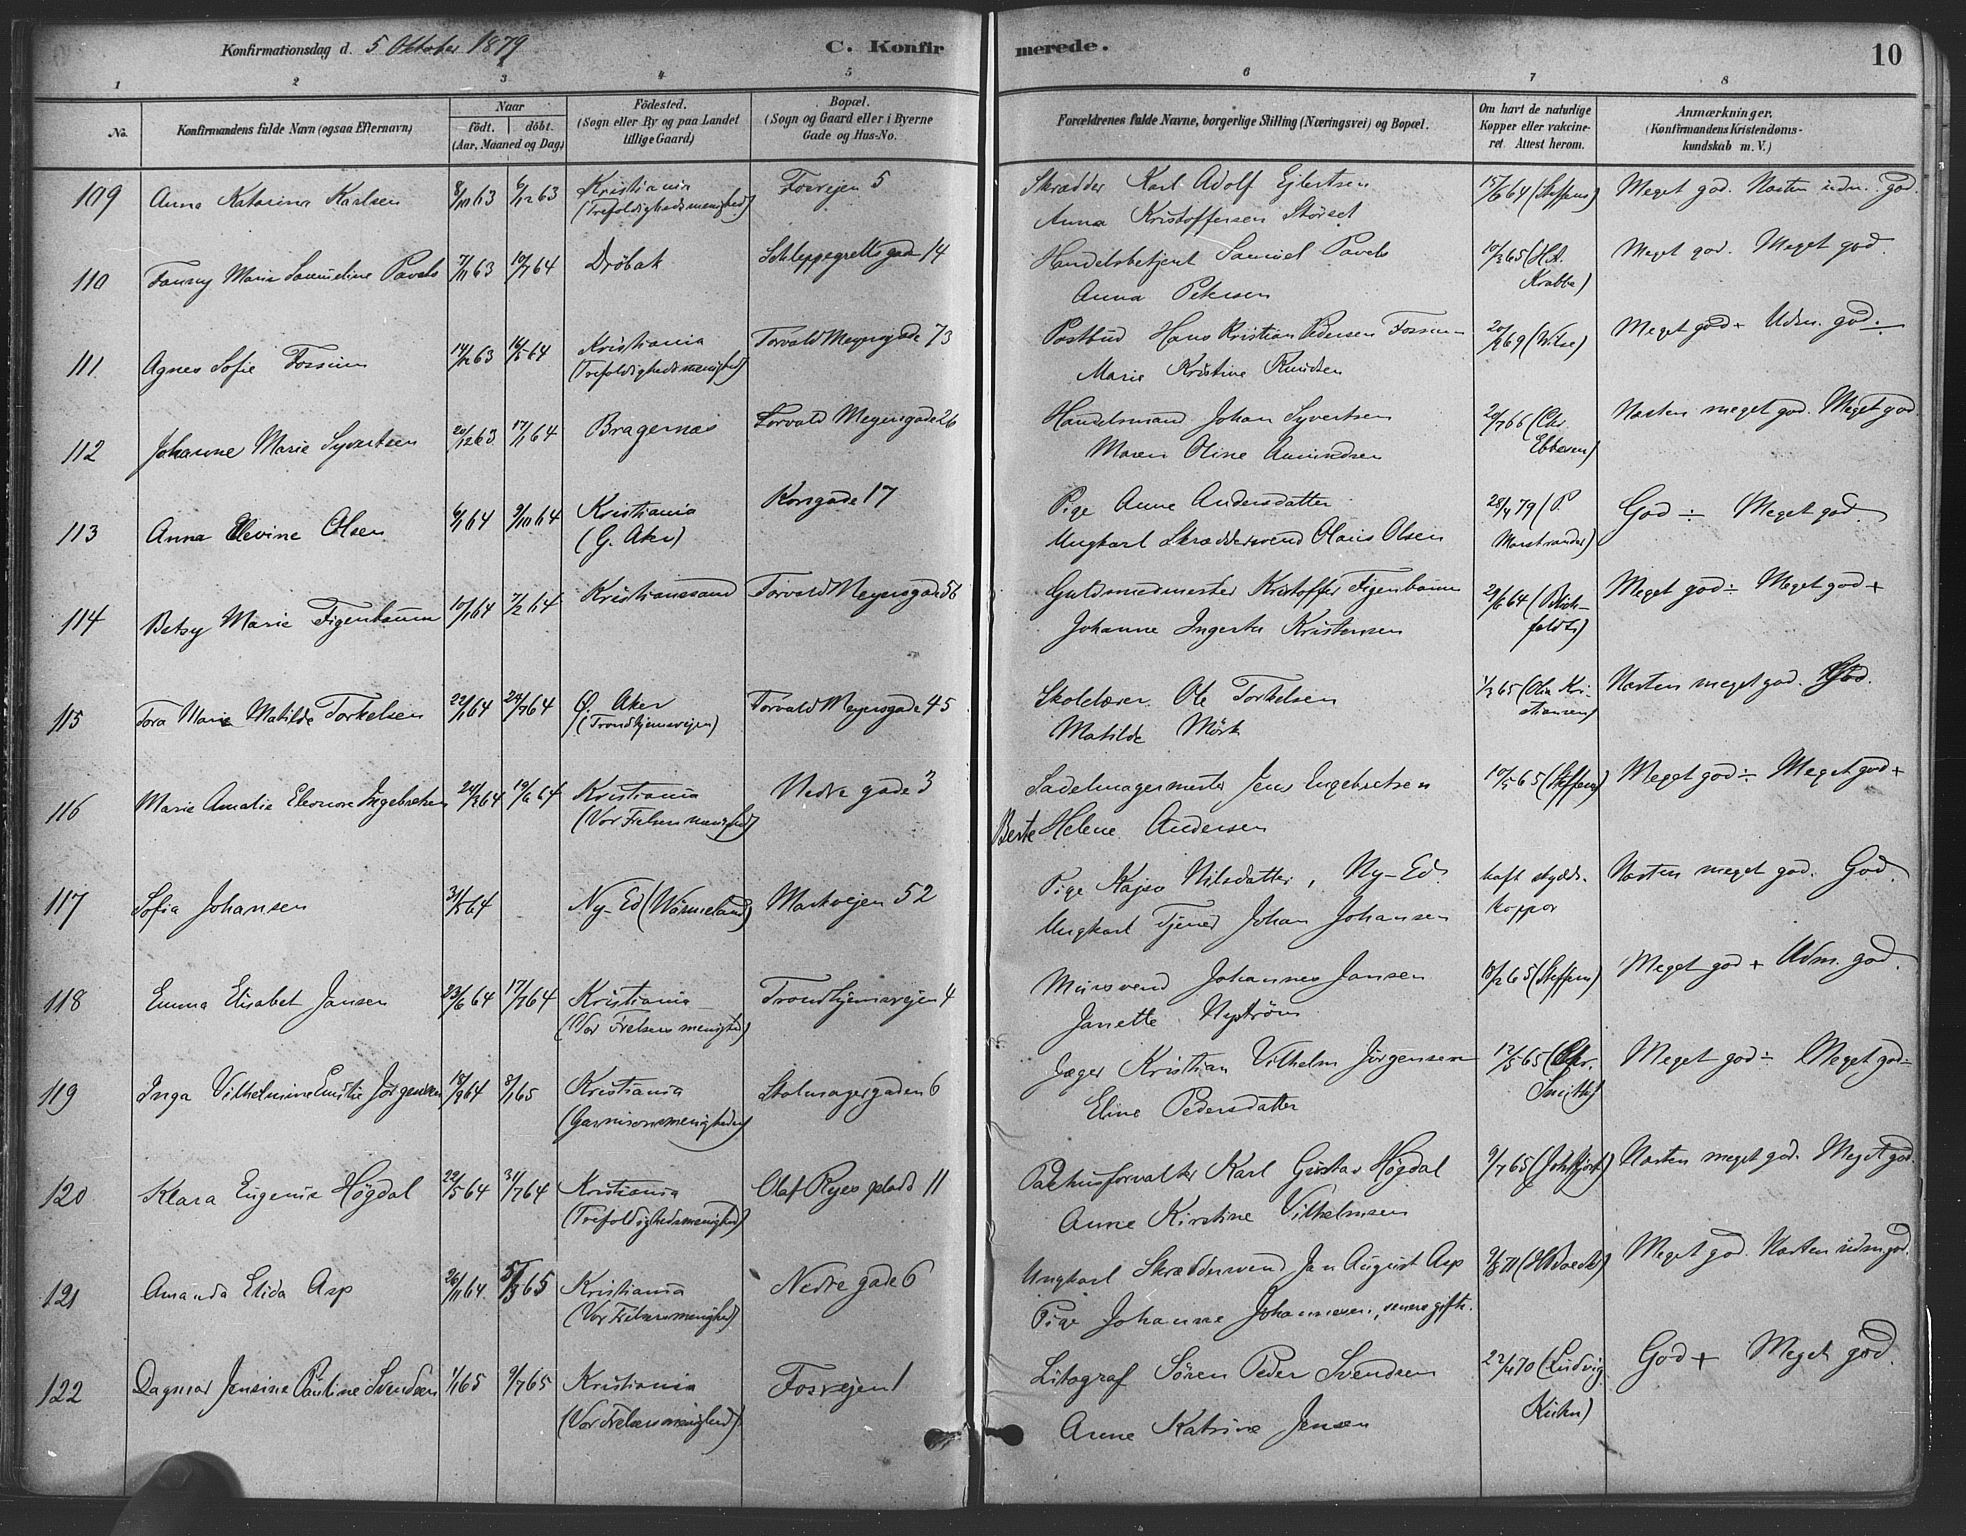 Konfirmationsdag d. 5 Oktober 1879
C. Konfirmerede.
10
1 2 3 4 5 6 7 8
No.
Konfirmandens fulde Navn (ogsaa Efternavn)
Naar
födt. döbt.
(Aar, Maaned og Dag)
Födested.
(Sogn eller By og paa Landet
tillige Gaard)
Bopæl.
(Sogn og Gaard eller i Byerne
Gade og Hus-No.
Forældrenes fulde Navne, borgerlige Stilling (Næringsvei) og Bopæl.
Om havt de naturlige
Kopper eller vakcine-
ret Attest herom.
Anmærkninger.
(Konfirmandens Kristendoms-
kundskab m. V.)
109 Anna Katarina Karlsen 8/10 63 6/12 63 Kristiania Fosvejen 5 Skrædder Karl Adolf Ejlertsen 15/6 64 (Steffens) Meget god. Næsten udm. god.
(Trefoldighedsmenighed) Anna Kristoffersen Störset
110 Fanny Marie Samueline Pavels 7/11 63 10/7 64 Dröbak Schleppegrellsgade 14 Handelsbetjent Samuel Pavels 10/3 65 (H. A. Meget god. Meget god.
Anna Petersen Krabbe)
111. Agnes Sofie Fossum 14/12 63 16/5 64 Kristiania Torvald Meyersgade 73 Postbud Hans Kristian Pedersen Fossum 69 (Wilse) Meget god + Udm. god ÷
(Trefoldighedsmenighed) Marie Kristine Knudsen
112 Johanne Marie Syvertsen 20/12 63 17/1 64 Bragernæs Torvald Meyersgade 26 Handelsmand Johan Syvertsen 20/7 66 (Chr. Næsten meget god. Meget god.
Maren Oline Amundsen Ebbesen)
113 Anna Elevine Olsen 6/1 64 9/10 64 Kristiania Korsgade 17 Pige Anne Andersdatter 28/4 79 (P. God ÷ Meget god.
(G. Aker) Ungkarl Skræddersvend Olaus Olsen Marstrander)
114 Betsy Marie Figenbaum 10/1 64 7/2 64 Kristianssand Torvald Meyersgade 56 Guldsmedmester Kristoffer Figenbaum 29/6 64 Meget god ÷ Meget god +
Johanne Ingerta Kristensen
115 Tora Marie Matilde Torkelsen 22/1 64 24/7 64 Ø. Aker Torvald Meyersgade 45 Skolelærer Ole Torkelsen 1/7 65 (Olia Kri- Næsten meget god. God.
(Trondhjemsvejen) Matilde Mörk stiansen)
116 Marie Amalie Eleonore Ingebretsen 24/3 64 19/6 64 Kristiania Nedre gade 3 Sadelmagermester Jens Engebretsen 10/5 65 (Steffens) Meget god ÷ Meget god +
(Vor Frelsers menighed) Berte Helene Andersen
117 Sofia Johansen 31/5 64 Ny-Ed (Wärmeland) Markvejen 52 Pige Kajsa Nilsdatter, Ny-Ed. haft skydds- Næsten meget god. God.
Ungkarl Tjener Johan Johansen koppor
118 Emma Elisabet Jansen 23/6 64 17/7 64 Kristiania Trondhjemsvejen 4 Mursvend Johannes Jansen 18/2 65 (Steffens) Meget god + Udm. god.
(Vor Frelsers menighed) Janette Nyström
119 Inga Vilhelmine Emilie Jörgensen 18/9 64 8/1 65 Kristiania Stolmagergaden 6 Jæger Kristian Vilhelm Jörgensen 12/5 65 (Chr. Meget god ÷ Meget god ÷
(Garnisonsmenigheden) Eline Pedersdatter Smith)
120 Klara Eugenie Högdal 22/5 64 31/7 64 Kristiania Olaf Ryes plads 11 Pakhusforvalter Karl Gustav Högdal 9/7 65 Næsten meget god. Meget god.
(Trefoldighedsmenighed) Anne Kirstine Vilhelmsen
121 Amanda Elida Asp 26/11 64 5/3 65 Kristiania Nedre gade 6 Ungkarl Skræddersvend Jan August Asp 9/8 71 Meget god. Næsten udm god.
(Vor Frelsersmenighed) Pige Johanne Johannesen, senere gifte.
122 Dagmar Jensine Pauline Svendsen 1/1 65 9/7 65 Kristiania Fosvejen 1 Litograf Sören Peder Svendsen 22/4 70 (Ludvig God + Meget god.
(Vor Frelsersmenighed) Anne Katrine Jensen Kühn)